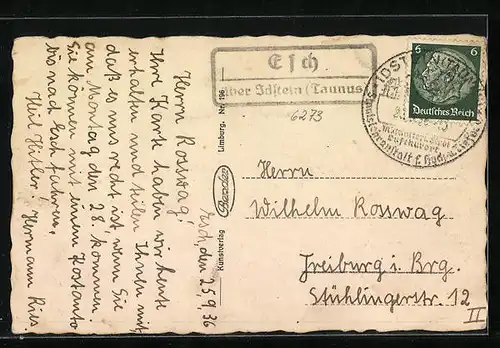 Herrn Rosswag!
Ihre Karte haben wir heute
erhalten und teilen Ihnen mit,
daß es uns recht ist, wenn Sie
am Montag, den 28. kommen.
Sie können mit einem Postauto
bis nach Esch fahren.
Heil Hitler, Hermann Ries.
Esch, den 23.9.36
Kunstverlag
Limburg. Nr. 196
Esch
über Idstein (Taunus)
6273
IDSTEIN
6
6
Deutsches Reich
Herrn
Wilhelm Rosswag
Freiburg i. Brg.
Stühlingerstr. 12
II